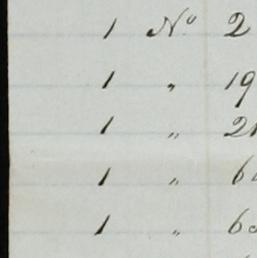 1 Nº 2
1 " 19
1 " 2
1 " 6
1 " 6